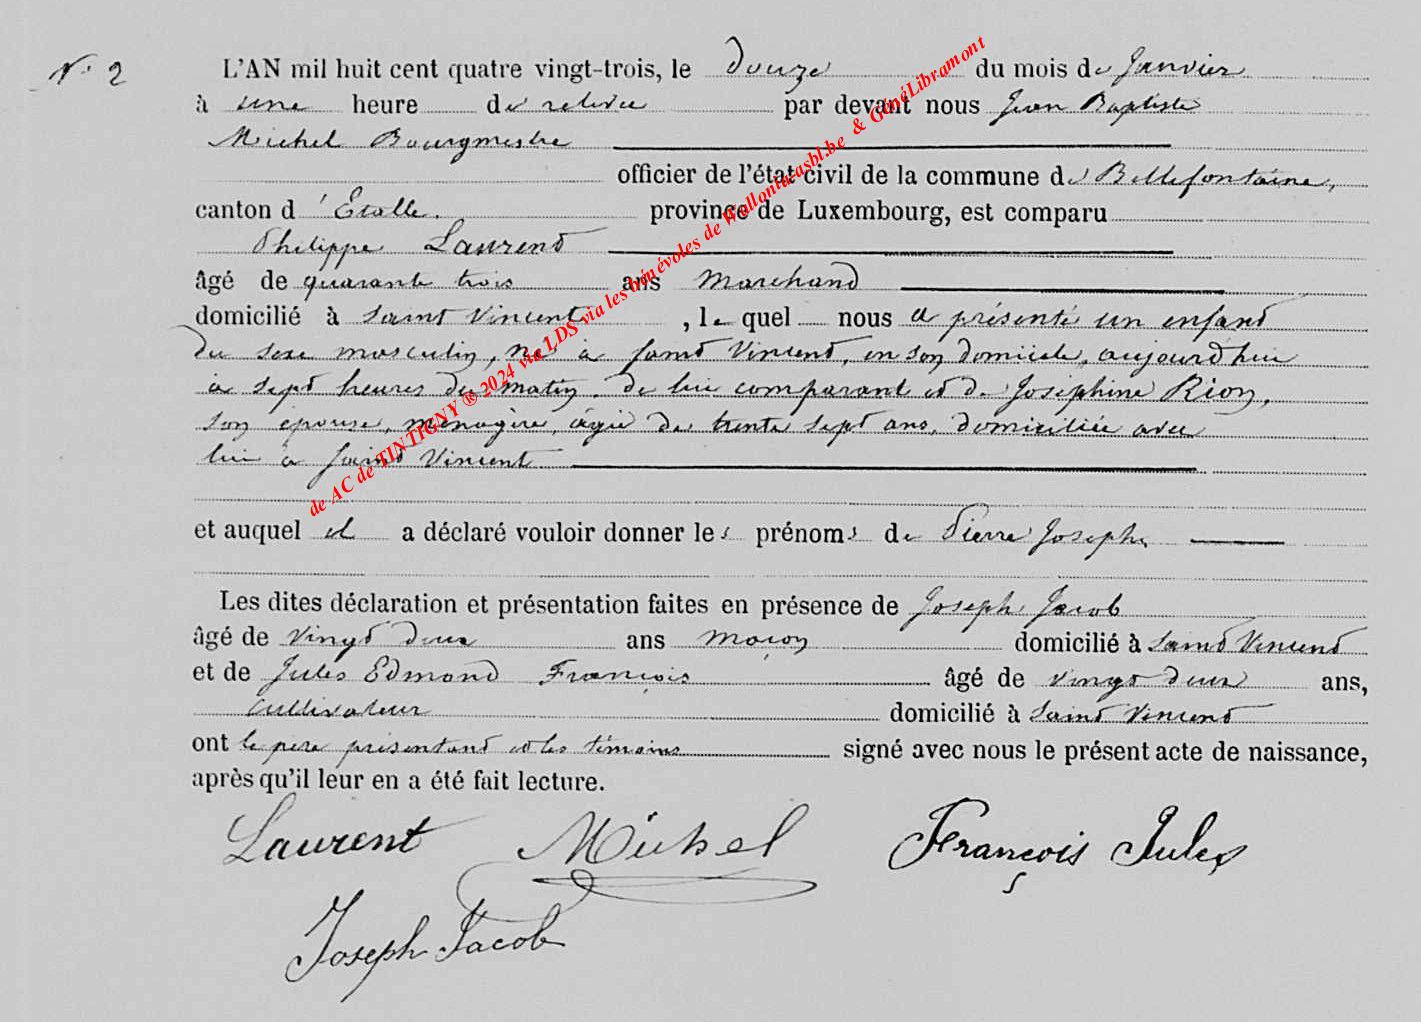 N° 2
L'AN mil huit cent quatre vingt-trois, le douze du mois de Janvier
à une heure de relevée par devant nous Jean Baptiste
Michel Bourgmestre
officier de l'état civil de la commune de Bellefontaine,
canton d'Etalle. province de Luxembourg, est comparu
Philippe Laurent
âgé de quarante trois ans Marchand
domicilié à Saint Vincent, le quel nous a présenté un enfant
du sexe masculin, né à Saint Vincent, en son domicile, aujourd'hui
à sept heures du matin, de lui comparant et de Joséphine Rion,
son épouse, ménagère, âgée de trente sept ans, domiciliée avec
lui à Saint Vincent
et auquel il a déclaré vouloir donner les prénoms de Pierre Joseph
Les dites déclaration et présentation faites en présence de Joseph Jacob
âgé de vingt deux ans maçon domicilié à Saint Vincent
et de Jules Edmond François âgé de vingt deux ans,
cultivateur domicilié à Saint Vincent
ont le père présentant et les témoins signé avec nous le présent acte de naissance,
après qu'il leur en a été fait lecture.
Laurent Michel François Jules
Joseph Jacob
de AC de TINTIGNY ® 2024 via LDS via les bénévoles de Wallonia-asbl.be & GénéLibramont